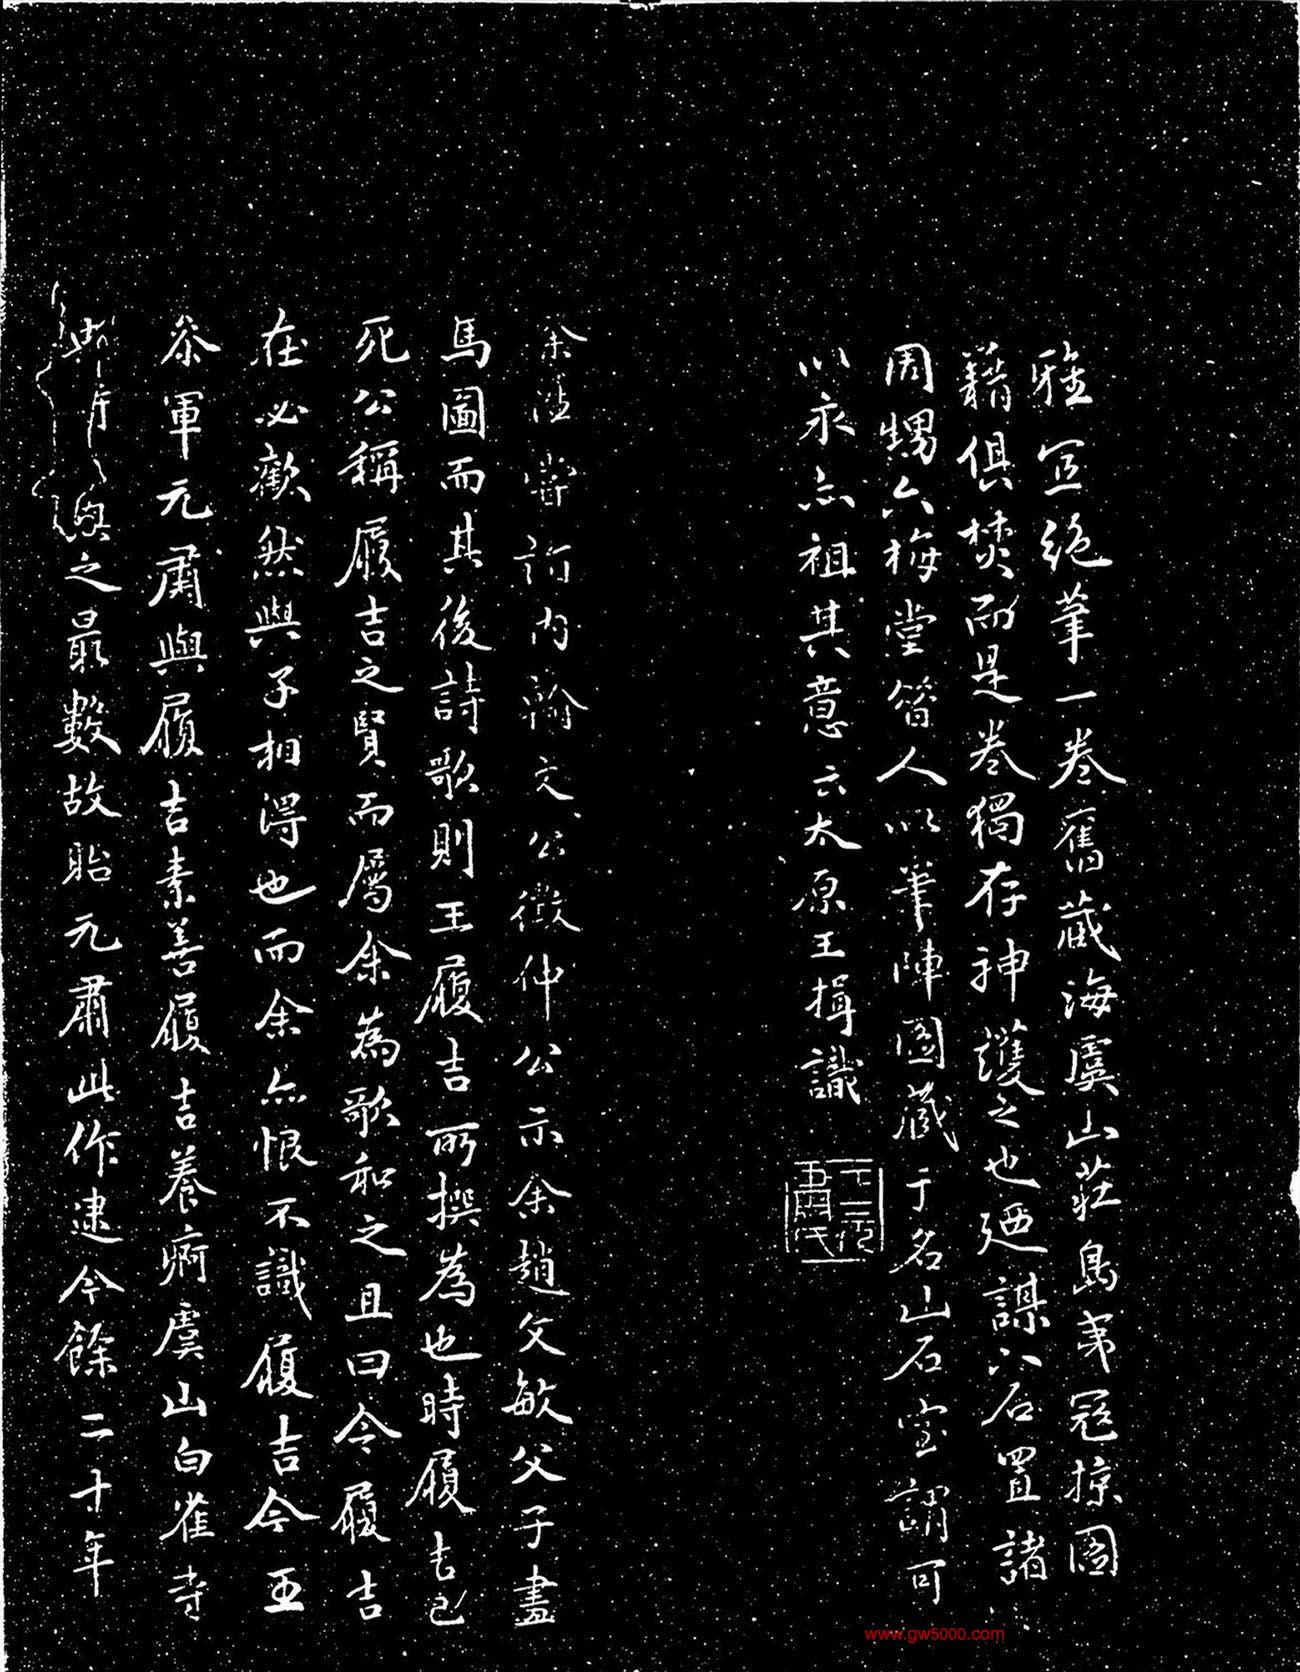 雅宜絶筆一卷舊藏海虞山莊島夷寇掠圖
籍俱焚而是卷獨存神護之也廼謀入石置諸
周甥六梅堂昔人以筆陣圖藏于名山石室謂可
以永亦祖其意云太原王揖識
余徃嘗詣内翰文公徵仲公示余趙文敏父子畫
馬圖而其後詩歌則王履吉所撰為也時履吉已
死公稱履吉之賢而屬余為歌和之且曰令履吉
在必歡然與子相得也而余亦恨不識履吉今王
叅軍元肅與履吉素善履吉養痾虞山白雀寺
與之最數故貽元肅此作逮今餘二十年
王元肅氏
www.gw5000.com